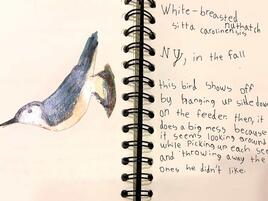 White-breasted
nuthatch
sitta carolinensis
NY, in the fall
this bird shows off
by hanging up side down
on the feeder. then, it
does a big mess because
it seems looking around
while picking up each see
and throwing away the
ones he didn't like.